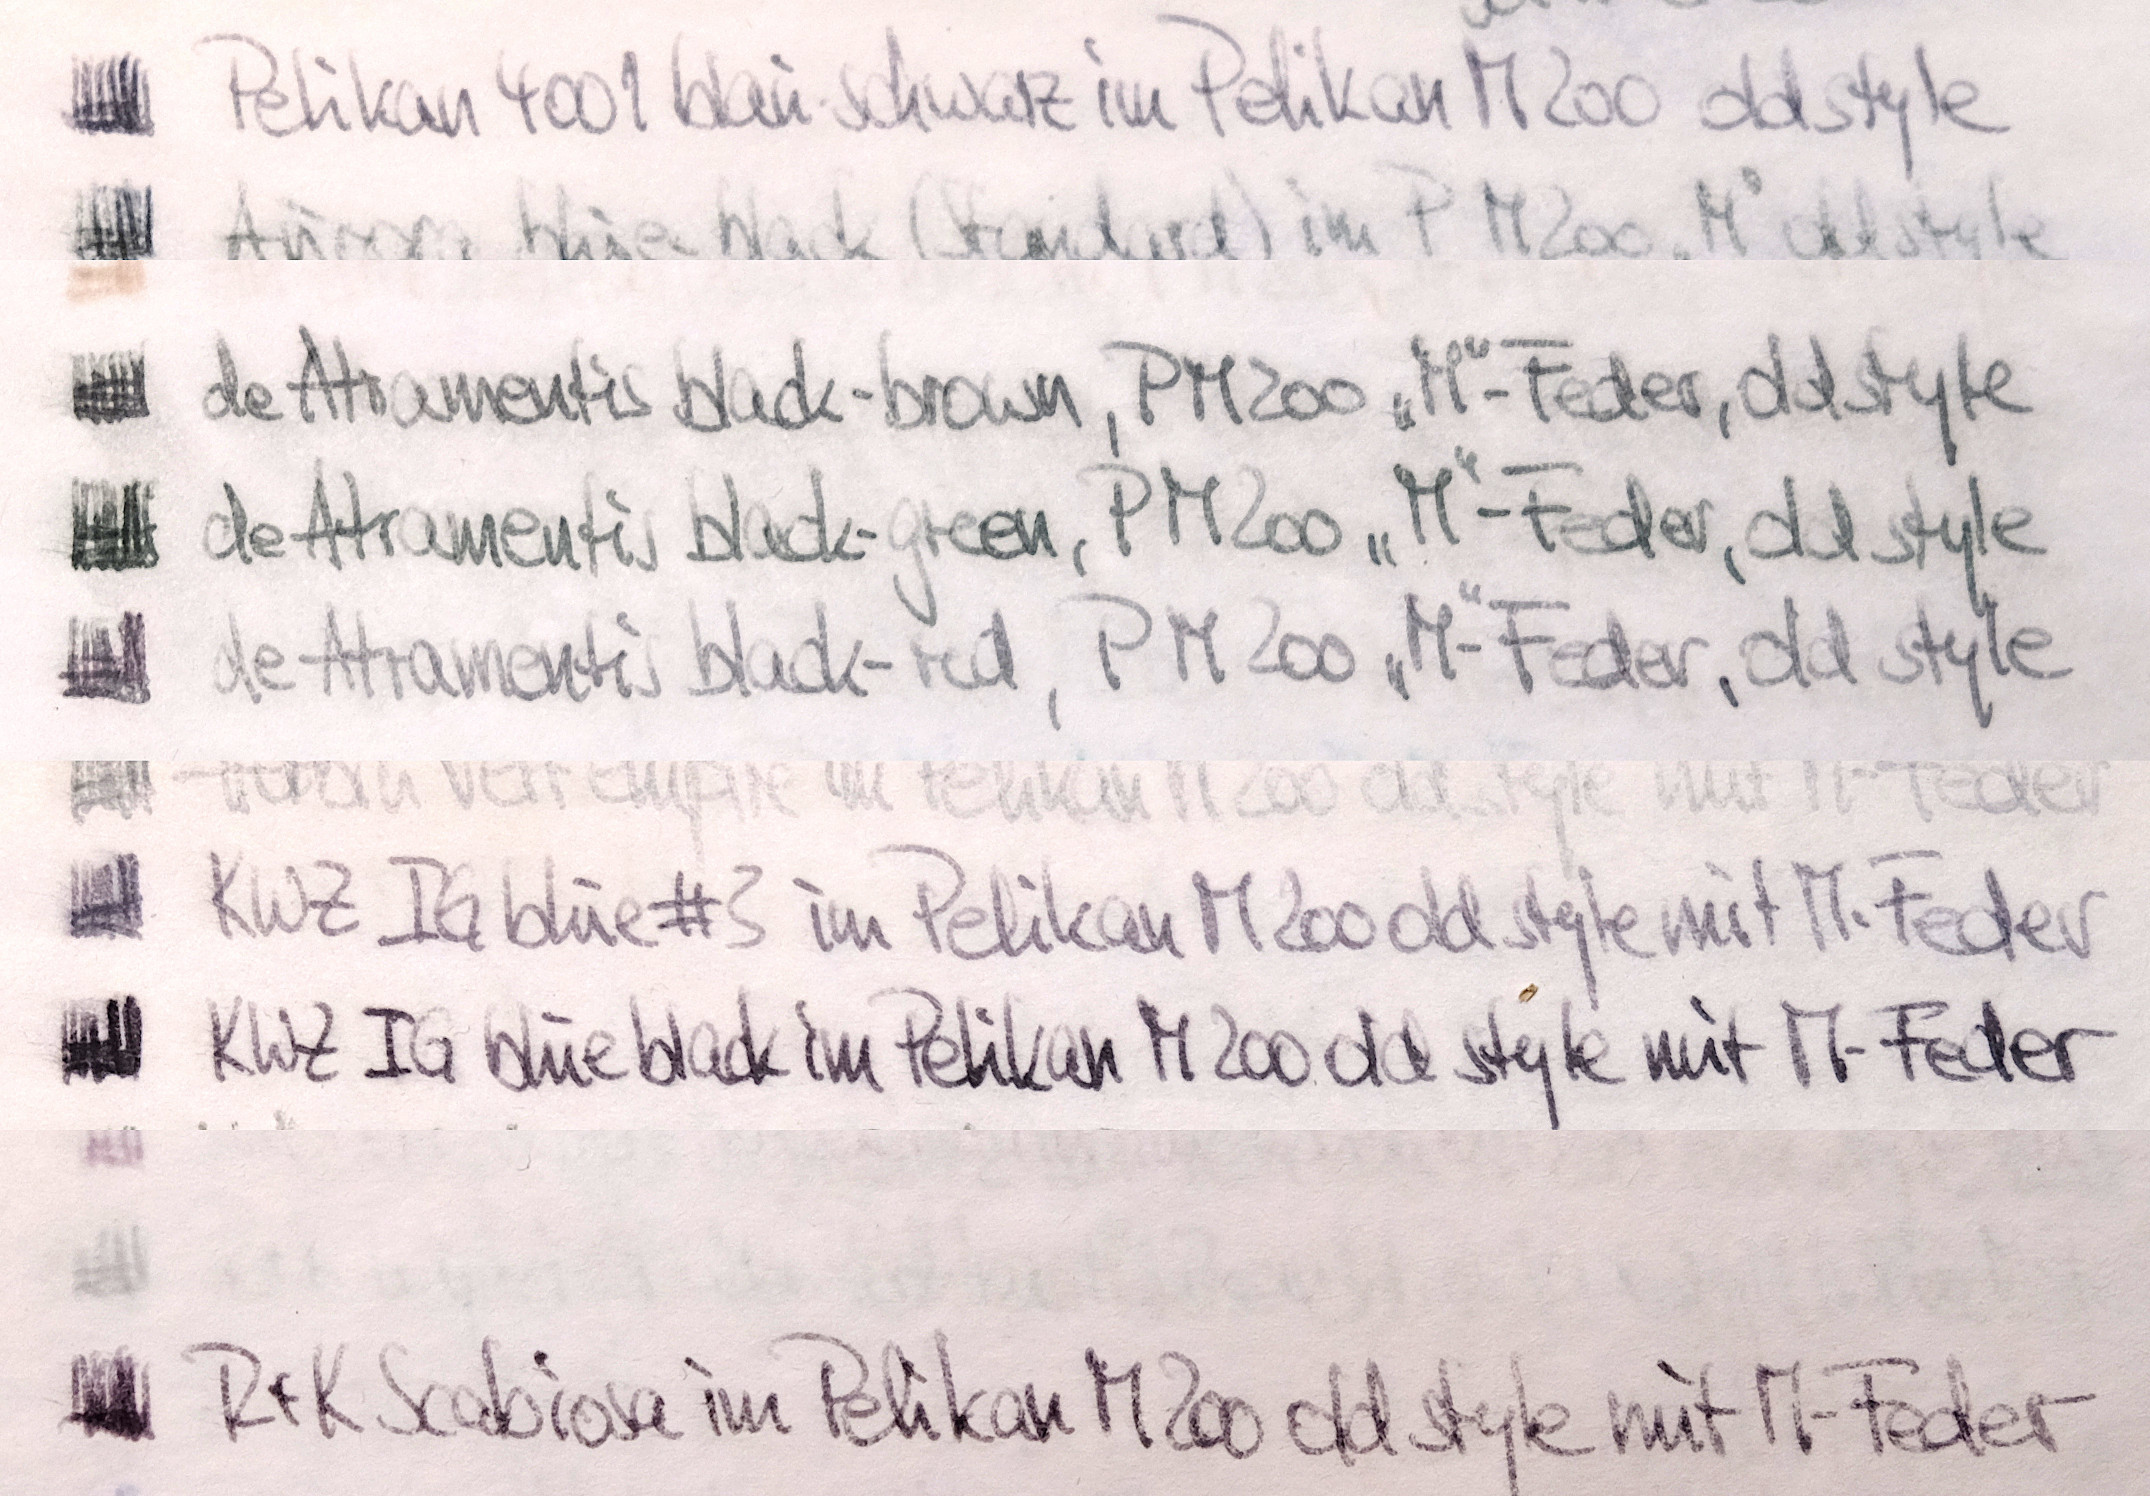 Pelikan 4001 blau-schwarz im Pelikan M200 old style
Aurora blue black (Standard) im P M200 „M“ old style
de Atramentis black-brown, PM200 „M“-Feder, old style
de Atramentis black-green, PM200 „M“-Feder, old style
de Atramentis black-red, PM200 „M“-Feder, old style
vert empire im Pelikan M200 old style mit M-Feder
KWZ IG blue #3 im Pelikan M200 old style mit M-Feder
KWZ IG blue black im Pelikan M200 old style mit M-Feder
R+K Scabiosa im Pelikan M200 old style mit M-Feder